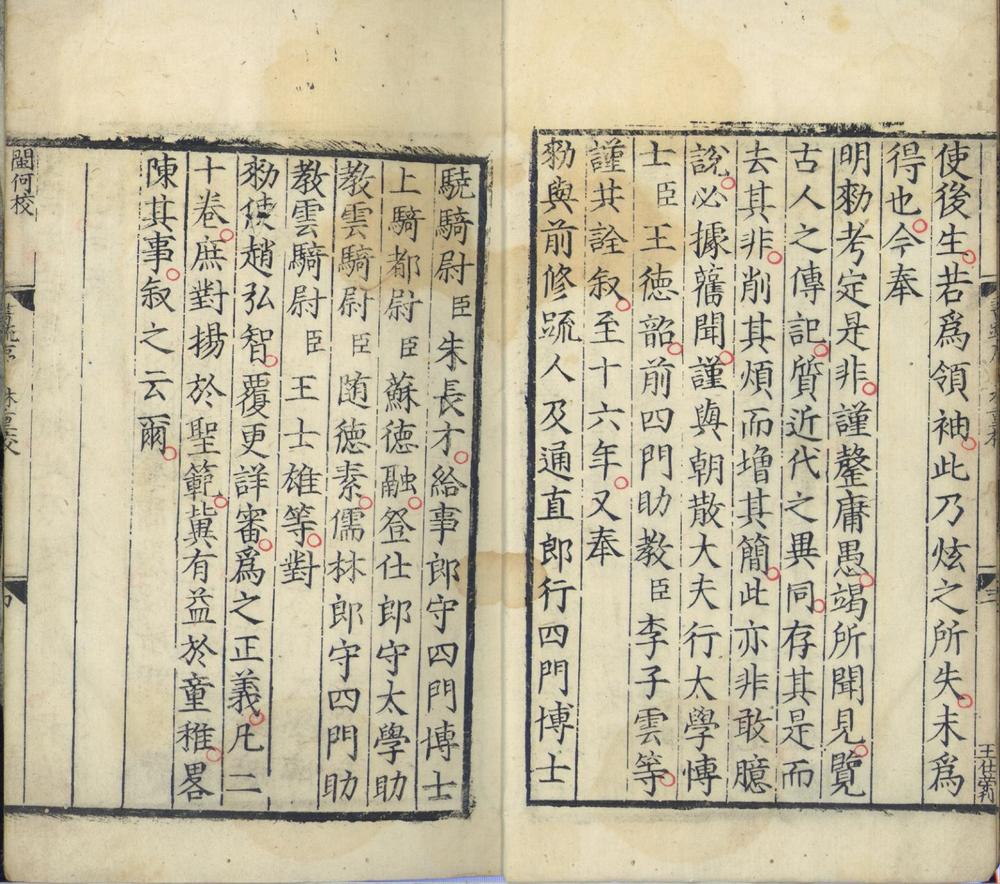 使後生若爲領袖此乃炫之所失未爲
得也今奉
明勑考定是非謹罄庸愚竭所聞見覽
古人之傳記質近代之異同存其是而
去其非削其煩而增其簡此亦非敢臆
說必據舊聞謹與朝散大夫行太學博
士臣王德韶前四門助教臣李子雲等
謹共詮叙至十六年又奉
勑與前修䟽人及通直郎行四門博士
驍騎尉臣朱長才給事郎守四門博士
上騎都尉臣蘇德融登仕郎守太學助
教雲騎尉臣隨德素儒林郎守四門助
教雲騎尉臣王士雄等對
勑使趙弘智覆更詳審爲之正義凡二
十卷庶對揚於聖範冀有益於童稚畧
陳其事叙之云爾
閩何校